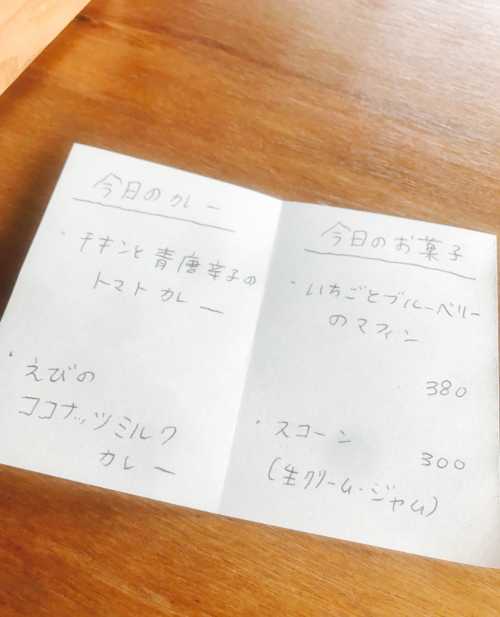 今日のカレー
・チキンと青唐辛子の
トマトカレー
・えびの
ココナッツミルク
カレー
今日のお菓子
・いちごとブルーベリー
のマフィン
380
・スコーン
300
(生クリーム・ジャム)